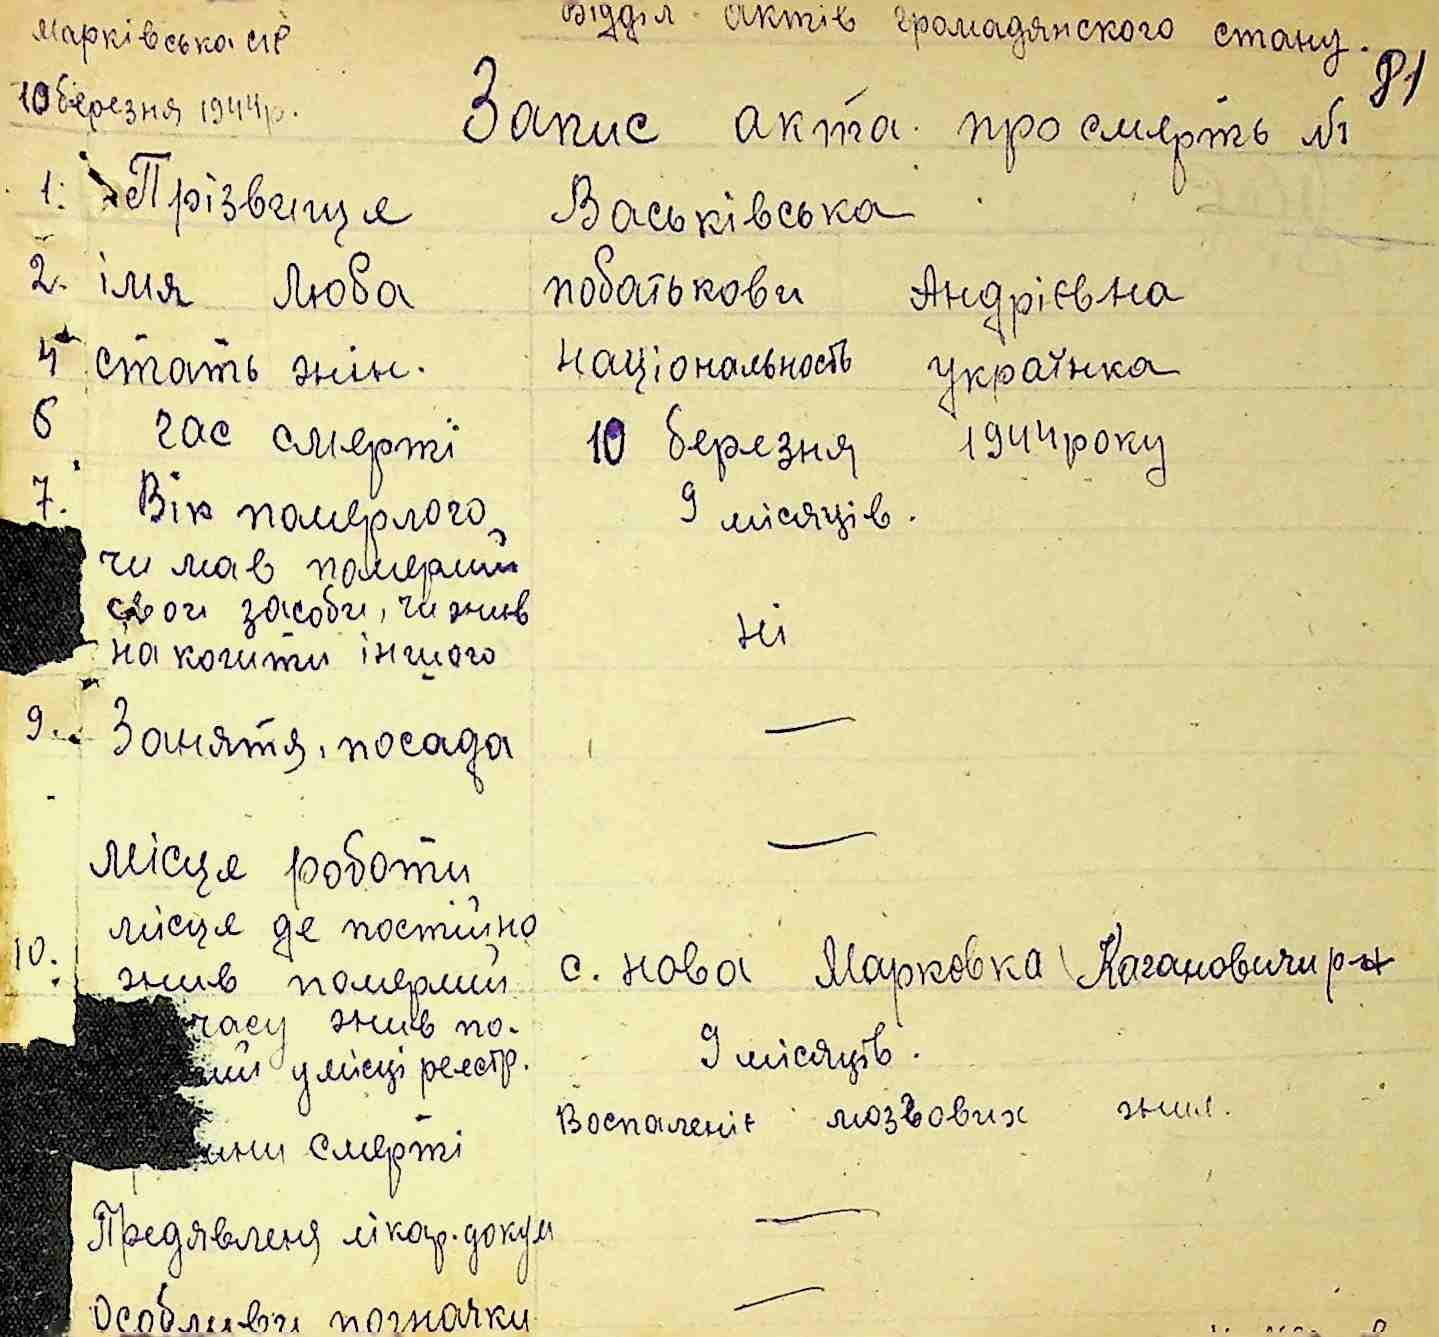 Відділ актів громадянского стану.
Марківська с/р
81
10 березня 1944 р.
Запис акта про смерть №1
1. Прізвище Васьківська
2. імя Люба побатькови Андрієвна
4 стать жін. національность українка
6 час смерті 10 березня 1944 року
7. Вік померлого 9 місяців.
чи мав померший
свои засоби, чи жив
на кошти іншого ні
9. Заняття, посада —
місце роботи —
місце де постійно
10. жив померший с. Нова Марковка Кагановичи р-н
часу жив по-
ший у місці реєстр. 9 місяців.
ини смерті Воспаленіє мозгових жил.
Предявленя лікар. докум —
Особливи позначки —